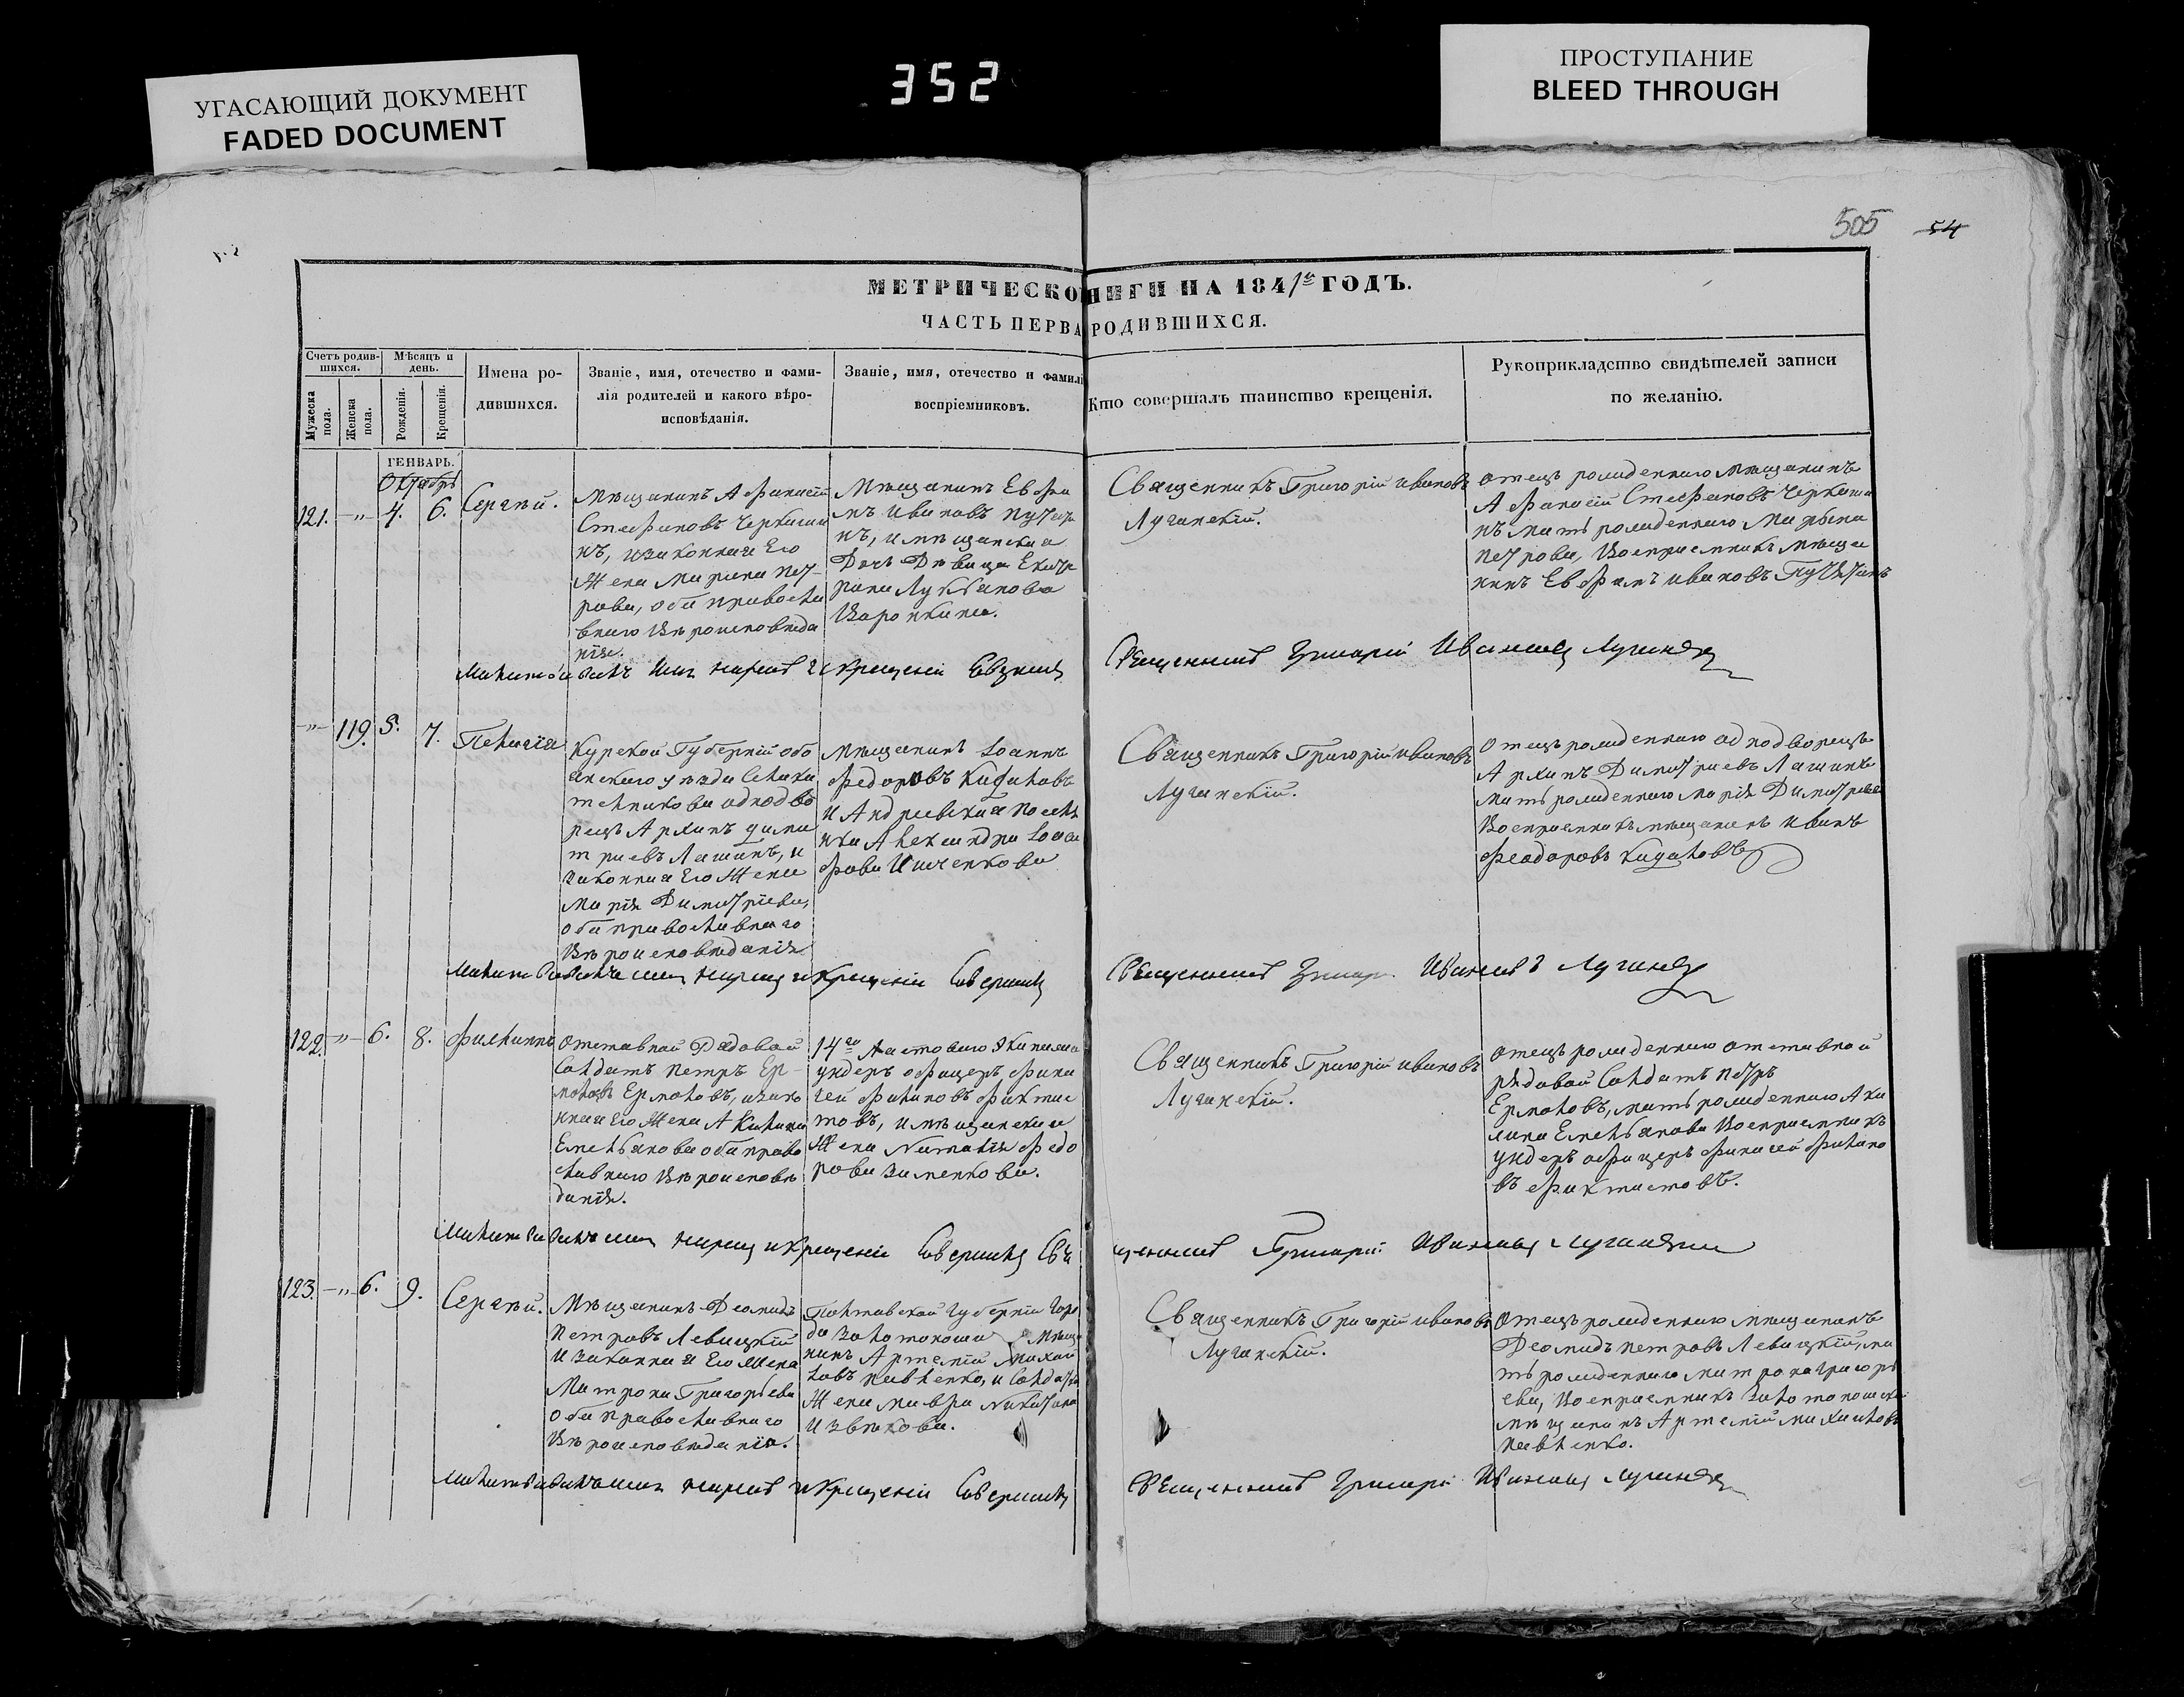 УГАСАЮЩИЙ ДОКУМЕНТ
FADED DOCUMENT
352
ПРОСТУПАНИЕ
BLEED THROUGH
505 54
МЕТРИЧЕСКО НИГИ НА 1841 ГОДЪ.
ЧАСТЬ ПЕРВА РОДИВШИХСЯ.
Счетъ родив-
шихся.
Мѣсяцъ и
день.
Мужеска
пола.
Женска
пола.
Рожденія.
Крещенія.
Имена ро-
дившихся.
Званіе, имя, отечество и фами-
лія родителей и какого вѣро-
исповѣданія.
Званіе, имя, отечество и фамилі
воспріемниковъ.
Кто совершалъ таинство крещенія.
Рукоприкладство свидѣтелей записи
по желанію.
ГЕНВАРЬ.
Октябрь
121. -„- 4. 6.
Сергѣй.
Мѣщанинъ Афанасій
Стефановъ Черкаши
нъ, и законная Его
Жена Марина Пет-
рова, оба правосла
внаго Вѣроисповѣда
нія.
Мѣщанинъ Евфи
мъ Ивановъ
нъ, и мѣщанская
Дочь Дѣвица Екате
рина Лукьянова
Воронкина.
Священникъ Григорій Ивановъ
Луганскій.
отецъ рожденнаго мѣщанинъ
Афанасій Стефановъ Черкаши
нъ мать рожденнаго Марына
Петрова, Воспріемникъ мѣща
нинъ Евфимъ Ивановъ
Молитвовалъ имя нарекъ и крещеніе Свершилъ
Священникъ Григорій Ивановъ Луганскій
-„- 119. 5. 7.
Пелагія
Курской Губерніи Обо
янскаго уѣзда
однодво
рецъ Архипъ Дими
тріевъ Лашинъ, и
законная Его Жена
Марія Димитріева,
оба православнаго
Вѣроисповѣданія
Мѣщанинъ Іоаннъ
Федоровъ
и Андреевская поселя
нка Александра Іоси
фова Ищенкова
Священникъ Григорій Ивановъ
Луганскій.
отецъ рожденнаго однодворецъ
Архипъ Димитріевъ Лашинъ
мать рожденнаго Марія Димитріева
Воспріемникъ мѣщанинъ Иванъ
Феодоровъ
имя нарекъ и Крещеніе Совершилъ
Священникъ Григор. Ивановъ Луганскій
122. -„- 6. 8.
Филиппъ
отставной Рядовой
Солдатъ Петръ Ер-
молаевъ Ермоловъ, и зако
нная Его Жена Акилина
Емельянова оба право
славнаго Вѣроисповѣ
данія.
14го Ластоваго Экипажа
ундеръ офицеръ Фина
гей Филиповъ Фиктис
товъ, и мѣщанская
Жена Наталія Федо
рова Зименкова.
Священникъ Григорій Ивановъ
Луганскій.
отецъ рожденнаго отставной
рядовой Солдатъ Петръ
Ермоловъ, мать рожденнаго Аки
лина Емельянова Воспріемникъ
ундеръ офицеръ Финагей Филипо
въ Фиктистовъ.
имя нарекъ и Крещеніе Совершилъ Свя
щенникъ Григорій Ивановъ Луганскій
123. -„- 6. 9.
Сергѣй.
Мѣщанинъ Деомидъ
Петровъ Левицкій
и законная Его Жена
Матрона Григорьева
оба православнаго
Вѣроисповѣданія.
Полтавской Губерніи Горо
да Золотоноши Мѣща
нинъ Артемій Михай
ловъ Павленко, и Солдатка
Жена Мавра Никитина
Извѣкова.
Священникъ Григорій Ивановъ
Луганскій.
отецъ рожденнаго мѣщанинъ
Деомидъ Петровъ Левицкій, ма
ть рожденнаго Матрона Григорь
ева, Воспріемникъ Золотоношскій
мѣщанинъ Артемій Михайловъ
Павленко.
имя нарекъ и Крещеніе Совершилъ
Священникъ Григорій Ивановъ Луганскій